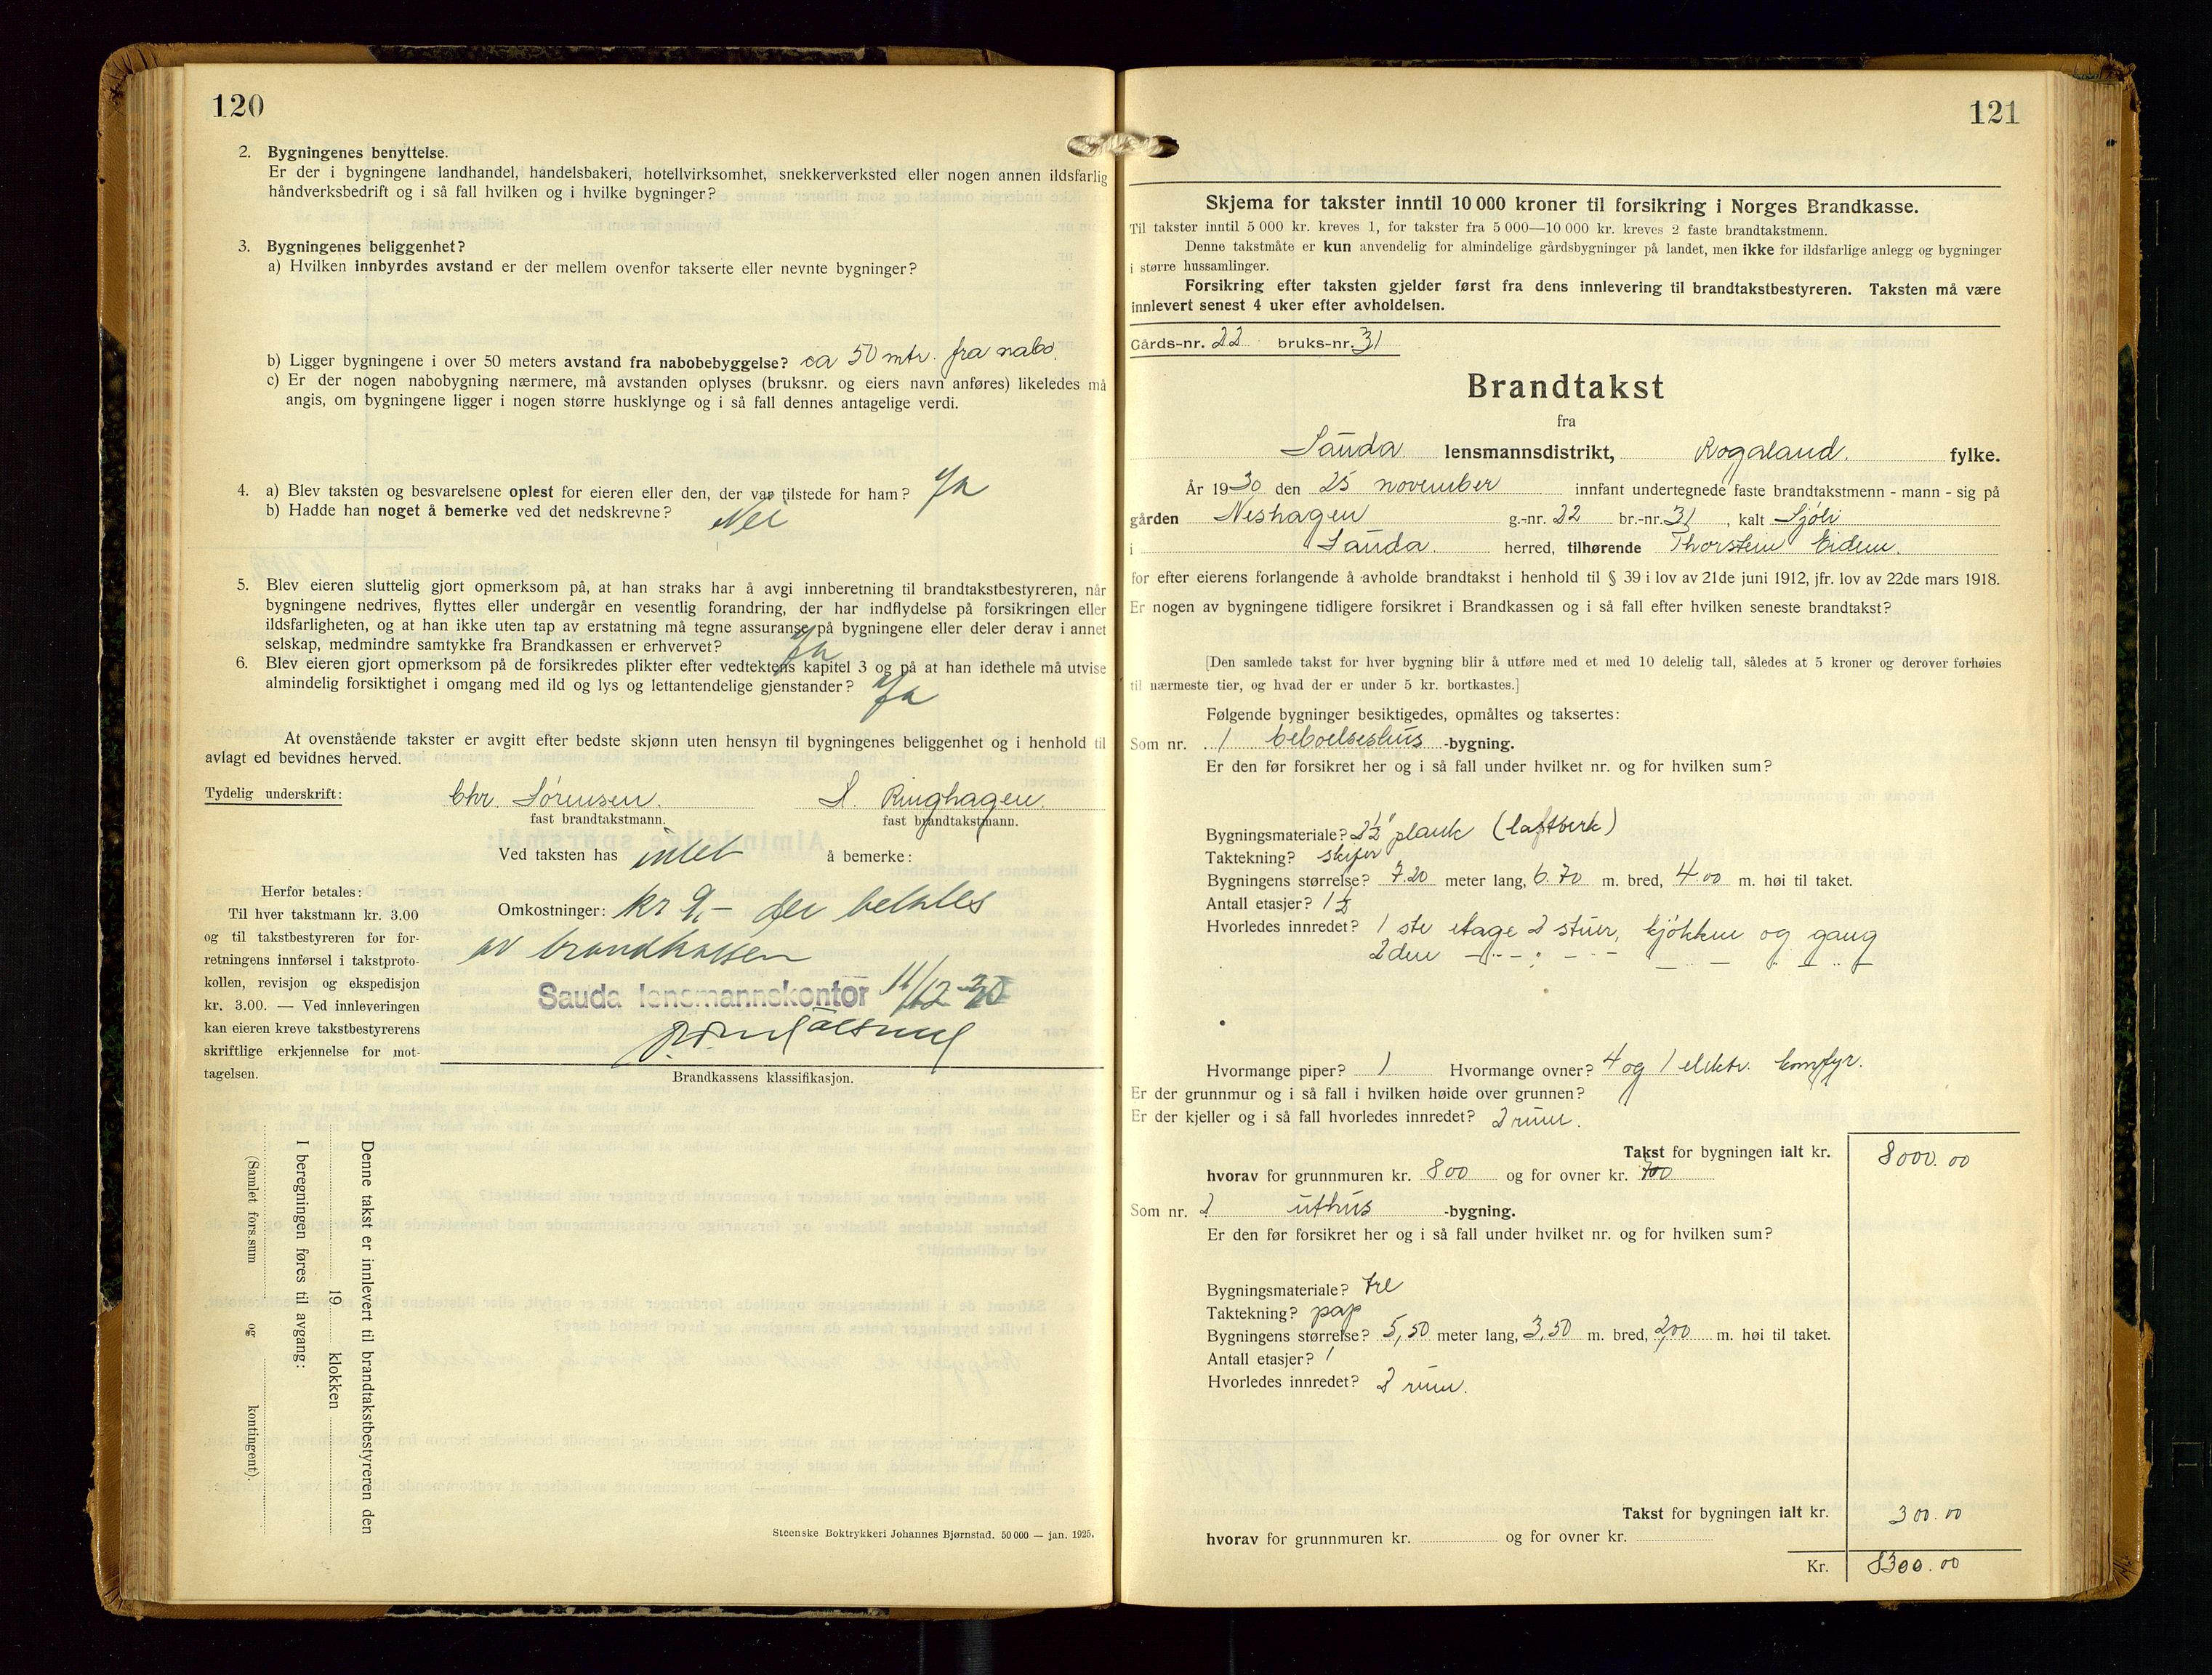 120
2. Bygningenes benyttelse.
Er der i bygningene landhandel, handelsbakeri, hotellvirksomhet, snekkerverksted eller nogen annen ildsfarlig
håndverksbedrift og i så fall hvilken og i hvilke bygninger?
3. Bygningenes beliggenhet?
a) Hvilken innbyrdes avstand er der mellem ovenfor takserte eller nevnte bygninger?
b) Ligger bygningene i over 50 meters avstand fra nabobebyggelse? ca 50 mtr. fra nabo.
c) Er der nogen nabobygning nærmere, må avstanden oplyses (bruksnr. og eiers navn anføres) likeledes må
angis, om bygningene ligger i nogen større husklynge og i så fall dennes antagelige verdi.
4. a) Blev taksten og besvarelsene oplest for eieren eller den, der var tilstede for ham? Ja
b) Hadde han noget å bemerke ved det nedskrevne? Nei
5. Blev eieren sluttelig gjort opmerksom på, at han straks har å avgi innberetning til brandtakstbestyreren, når
bygningene nedrives, flyttes eller undergår en vesentlig forandring, der har indflydelse på forsikringen eller
ildsfarligheten, og at han ikke uten tap av erstatning må tegne assuranse på bygningene eller deler derav i annet
selskap, medmindre samtykke fra Brandkassen er erhvervet? Ja
6. Blev eieren gjort opmerksom på de forsikredes plikter efter vedtektens kapitel 3 og på at han idethele må utvise
almindelig forsiktighet i omgang med ild og lys og lettantendelige gjenstander? Ja
At ovenstående takster er avgitt efter bedste skjønn uten hensyn til bygningenes beliggenhet og i henhold til
avlagt ed bevidnes herved.
Tydelig underskrift: Chr. Sörensen. S. Ringhagen.
fast brandtakstmann. fast brandtakstmann.
Ved taksten has intet å bemerke:
Omkostninger: kr 9,- der betales
av brandkassen
Sauda lensmannskontor 11/12-30
Brandkassens klassifikasjon.
Herfor betales:
Til hver takstmann kr. 3.00
og til takstbestyreren for for-
retningens innførsel i takstproto-
kollen, revisjon og ekspedisjon
kr. 3.00. — Ved innleveringen
kan eieren kreve takstbestyrerens
skriftlige erkjennelse for mot-
tagelsen.
Denne takst er innlevert til brandtakstbestyreren den
19 klokken
I beregningen føres til avgang:
(Samlet fors.sum og kontingent).
Steenske Boktrykkeri Johannes Bjørnstad. 50 000 — jan. 1925.
121
Skjema for takster inntil 10 000 kroner til forsikring i Norges Brandkasse.
Til takster inntil 5 000 kr. kreves 1, for takster fra 5 000—10 000 kr. kreves 2 faste brandtakstmenn.
Denne takstmåte er kun anvendelig for almindelige gårdsbygninger på landet, men ikke for ildsfarlige anlegg og bygninger
i større hussamlinger.
Forsikring efter taksten gjelder først fra dens innlevering til brandtakstbestyreren. Taksten må være
innlevert senest 4 uker efter avholdelsen.
Gårds-nr. 22 bruks-nr. 31
Brandtakst
fra
Sauda. lensmannsdistrikt, Rogaland. fylke.
År 1930 den 25 november innfant undertegnede faste brandtakstmenn - mann - sig på
gården Neshagen g.-nr. 22 br.-nr. 31, kalt Sjöli
i Sauda. herred, tilhørende Thorstein Eidem.
for efter eierens forlangende å avholde brandtakst i henhold til § 39 i lov av 21de juni 1912, jfr. lov av 22de mars 1918.
Er nogen av bygningene tidligere forsikret i Brandkassen og i så fall efter hvilken seneste brandtakst?
[Den samlede takst for hver bygning blir å utføre med et med 10 delelig tall, således at 5 kroner og derover forhøies
til nærmeste tier, og hvad der er under 5 kr. bortkastes.]
Følgende bygninger besiktigedes, opmåltes og taksertes:
Som nr. 1 beboelseshus -bygning.
Er den før forsikret her og i så fall under hvilket nr. og for hvilken sum?
Bygningsmateriale? 2½" plank (laftverk)
Taktekning? skifer
Bygningens størrelse? 7.20 meter lang, 6.70 m. bred, 4.00 m. høi til taket.
Antall etasjer? 1½
Hvorledes innredet? 1 ste etage 2 stuer, kjökken og gang
2den — " — " — " —
Hvormange piper? 1 Hvormange ovner? 4 og 1 elektr. komfyr.
Er der grunnmur og i så fall i hvilken høide over grunnen?
Er der kjeller og i så fall hvorledes innredet? 2 rum.
Takst for bygningen ialt kr. 8000.00
hvorav for grunnmuren kr. 800 og for ovner kr. 700
Som nr. 2 uthus -bygning.
Er den før forsikret her og i så fall under hvilket nr. og for hvilken sum?
Bygningsmateriale? tre
Taktekning? pap
Bygningens størrelse? 5,50 meter lang, 3,50 m. bred, 2,00 m. høi til taket.
Antall etasjer? 1
Hvorledes innredet? 2 rum.
Takst for bygningen ialt kr. 300.00
hvorav for grunnmuren kr. og for ovner kr.
Kr. 8300.00